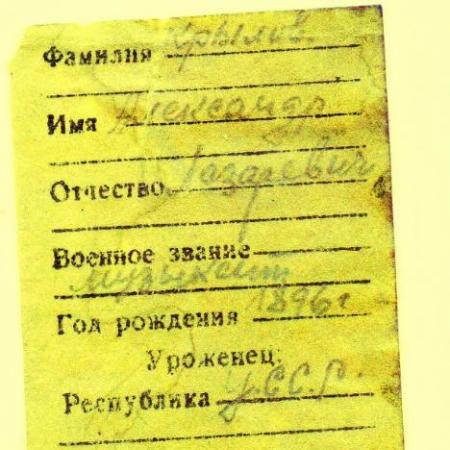 Фамилия Крылов
Имя Александр
Отчество Лазаревич
Военное звание
музыкант
Год рождения 1896 г
Уроженец:
Республика У.С.С.Р.